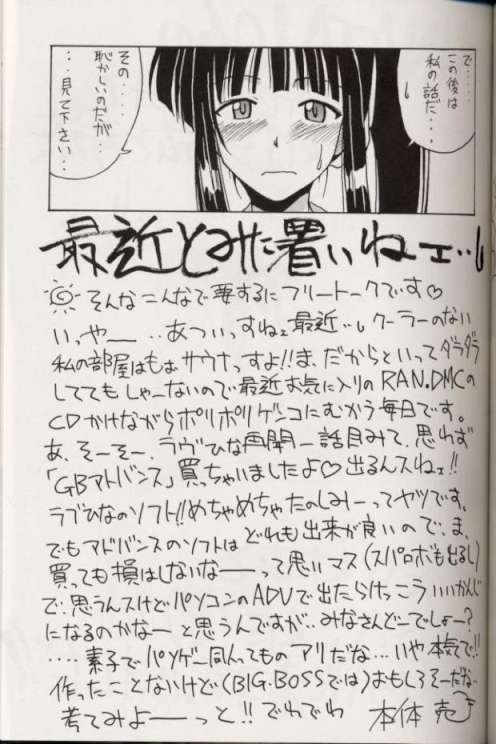 で・・・・
この後は
私の話だ・・
その・・・・
恥かしいのだが・・・
・・・見て下さい・・
最近とみに暑いねェ・・
そんなこんなで要するにフリートークです♡
いっやー ・・あついっすねェ最近・・ クーラーのない
私の部屋はもぉサウナっすよ!!ま、だからといってダラダラ
しててもしゃーないので最近お気に入りのRAN.DMCの
CDかけながらポリポリゲンコにむかう毎日です。
あ、そーそー、ラヴひな再開一話目みて、思わず
「GBアドバンス」買っちゃいましたよ♡出るんスねェ!!
ラブひなのソフト!!めちゃめちゃたのしみーってヤツです。
でもアドバンスのソフトはどれも出来が良いので、ま、
買っても損はしないなーって思いマス(スパロボも出るし)
で、思うんスけどパソコンのADVで出たらけっこういいかんじ
になるのかなーと思うんですが・・みなさんどーでしょー?
・・・・素子でパソゲー同人ってものアリだな・・・いや本気で!!
作ったことないけど(BIG・BOSSでは)おもしろそーだな・・
考てみよーーっと!!でわでわ 本体 売